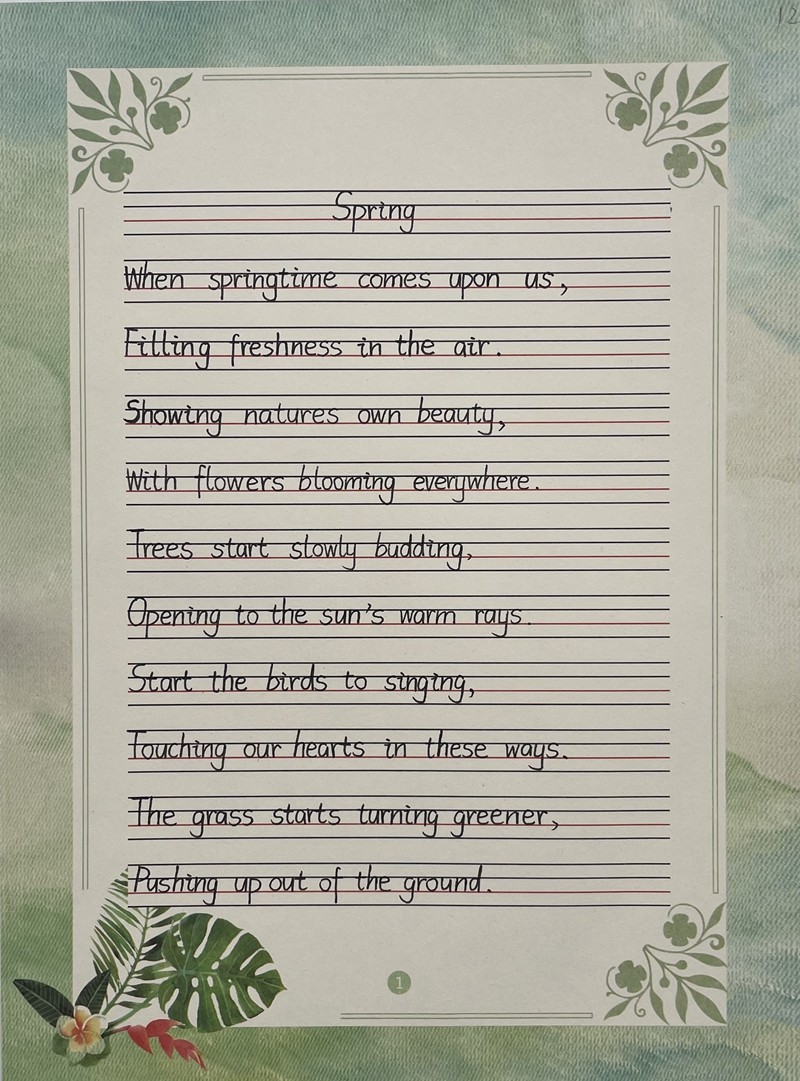 12
Spring
When springtime comes upon us,
Filling freshness in the air.
Showing natures own beauty,
With flowers blooming everywhere.
Trees start slowly budding,
Opening to the sun's warm rays.
Start the birds to singing,
Touching our hearts in these ways.
The grass starts turning greener,
Pushing up out of the ground.
1